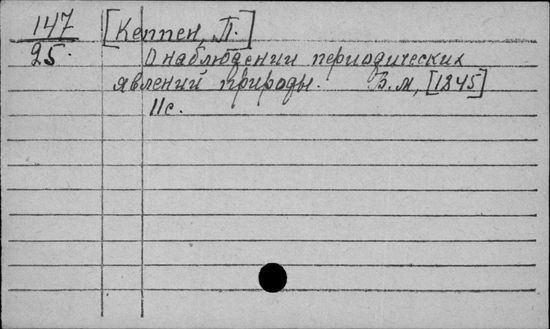 147 [Кеппен, П.]
25. О наблюдении периодических
явлений природы. Б. м, [1845]
11с.